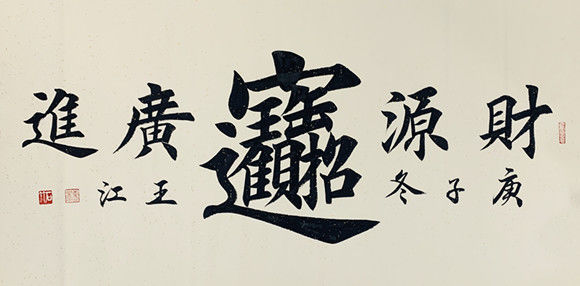 財源 招財進寶 廣進
庚子冬 王江